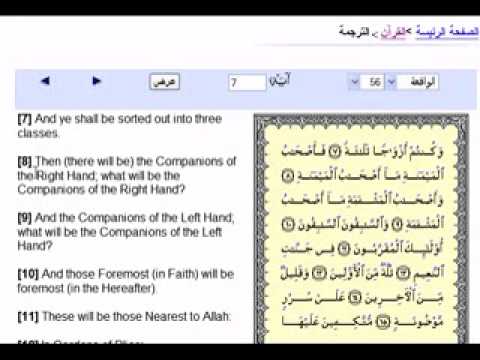 الصفحة الرئيسة > القرآن > الترجمة
الواقعة 56 آية: 7 عرض
[7] And ye shall be sorted out into three
classes.
[8] Then (there will be) the Companions of
the Right Hand; what will be the
Companions of the Right Hand?
[9] And the Companions of the Left Hand;
what will be the Companions of the Left
Hand?
[10] And those Foremost (in Faith) will be
foremost (in the Hereafter).
[11] These will be those Nearest to Allah:
وَكُنتُمْ أَزْوَٰجًا ثَلَٰثَةً ٧ فَأَصْحَٰبُ
ٱلْمَيْمَنَةِ مَآ أَصْحَٰبُ ٱلْمَيْمَنَةِ ٨
وَأَصْحَٰبُ ٱلْمَشْـَٔمَةِ مَآ أَصْحَٰبُ
ٱلْمَشْـَٔمَةِ ٩ وَٱلسَّٰبِقُونَ ٱلسَّٰبِقُونَ ١٠
أُو۟لَٰٓئِكَ ٱلْمُقَرَّبُونَ ١١ فِى جَنَّٰتِ
ٱلنَّعِيمِ ١٢ ثُلَّةٌ مِّنَ ٱلْأَوَّلِينَ ١٣ وَقَلِيلٌ
مِّنَ ٱلْـَٔاخِرِينَ ١٤ عَلَىٰ سُرُرٍ
مَّوْضُونَةٍ ١٥ مُّتَّكِـِٔينَ عَلَيْهَا